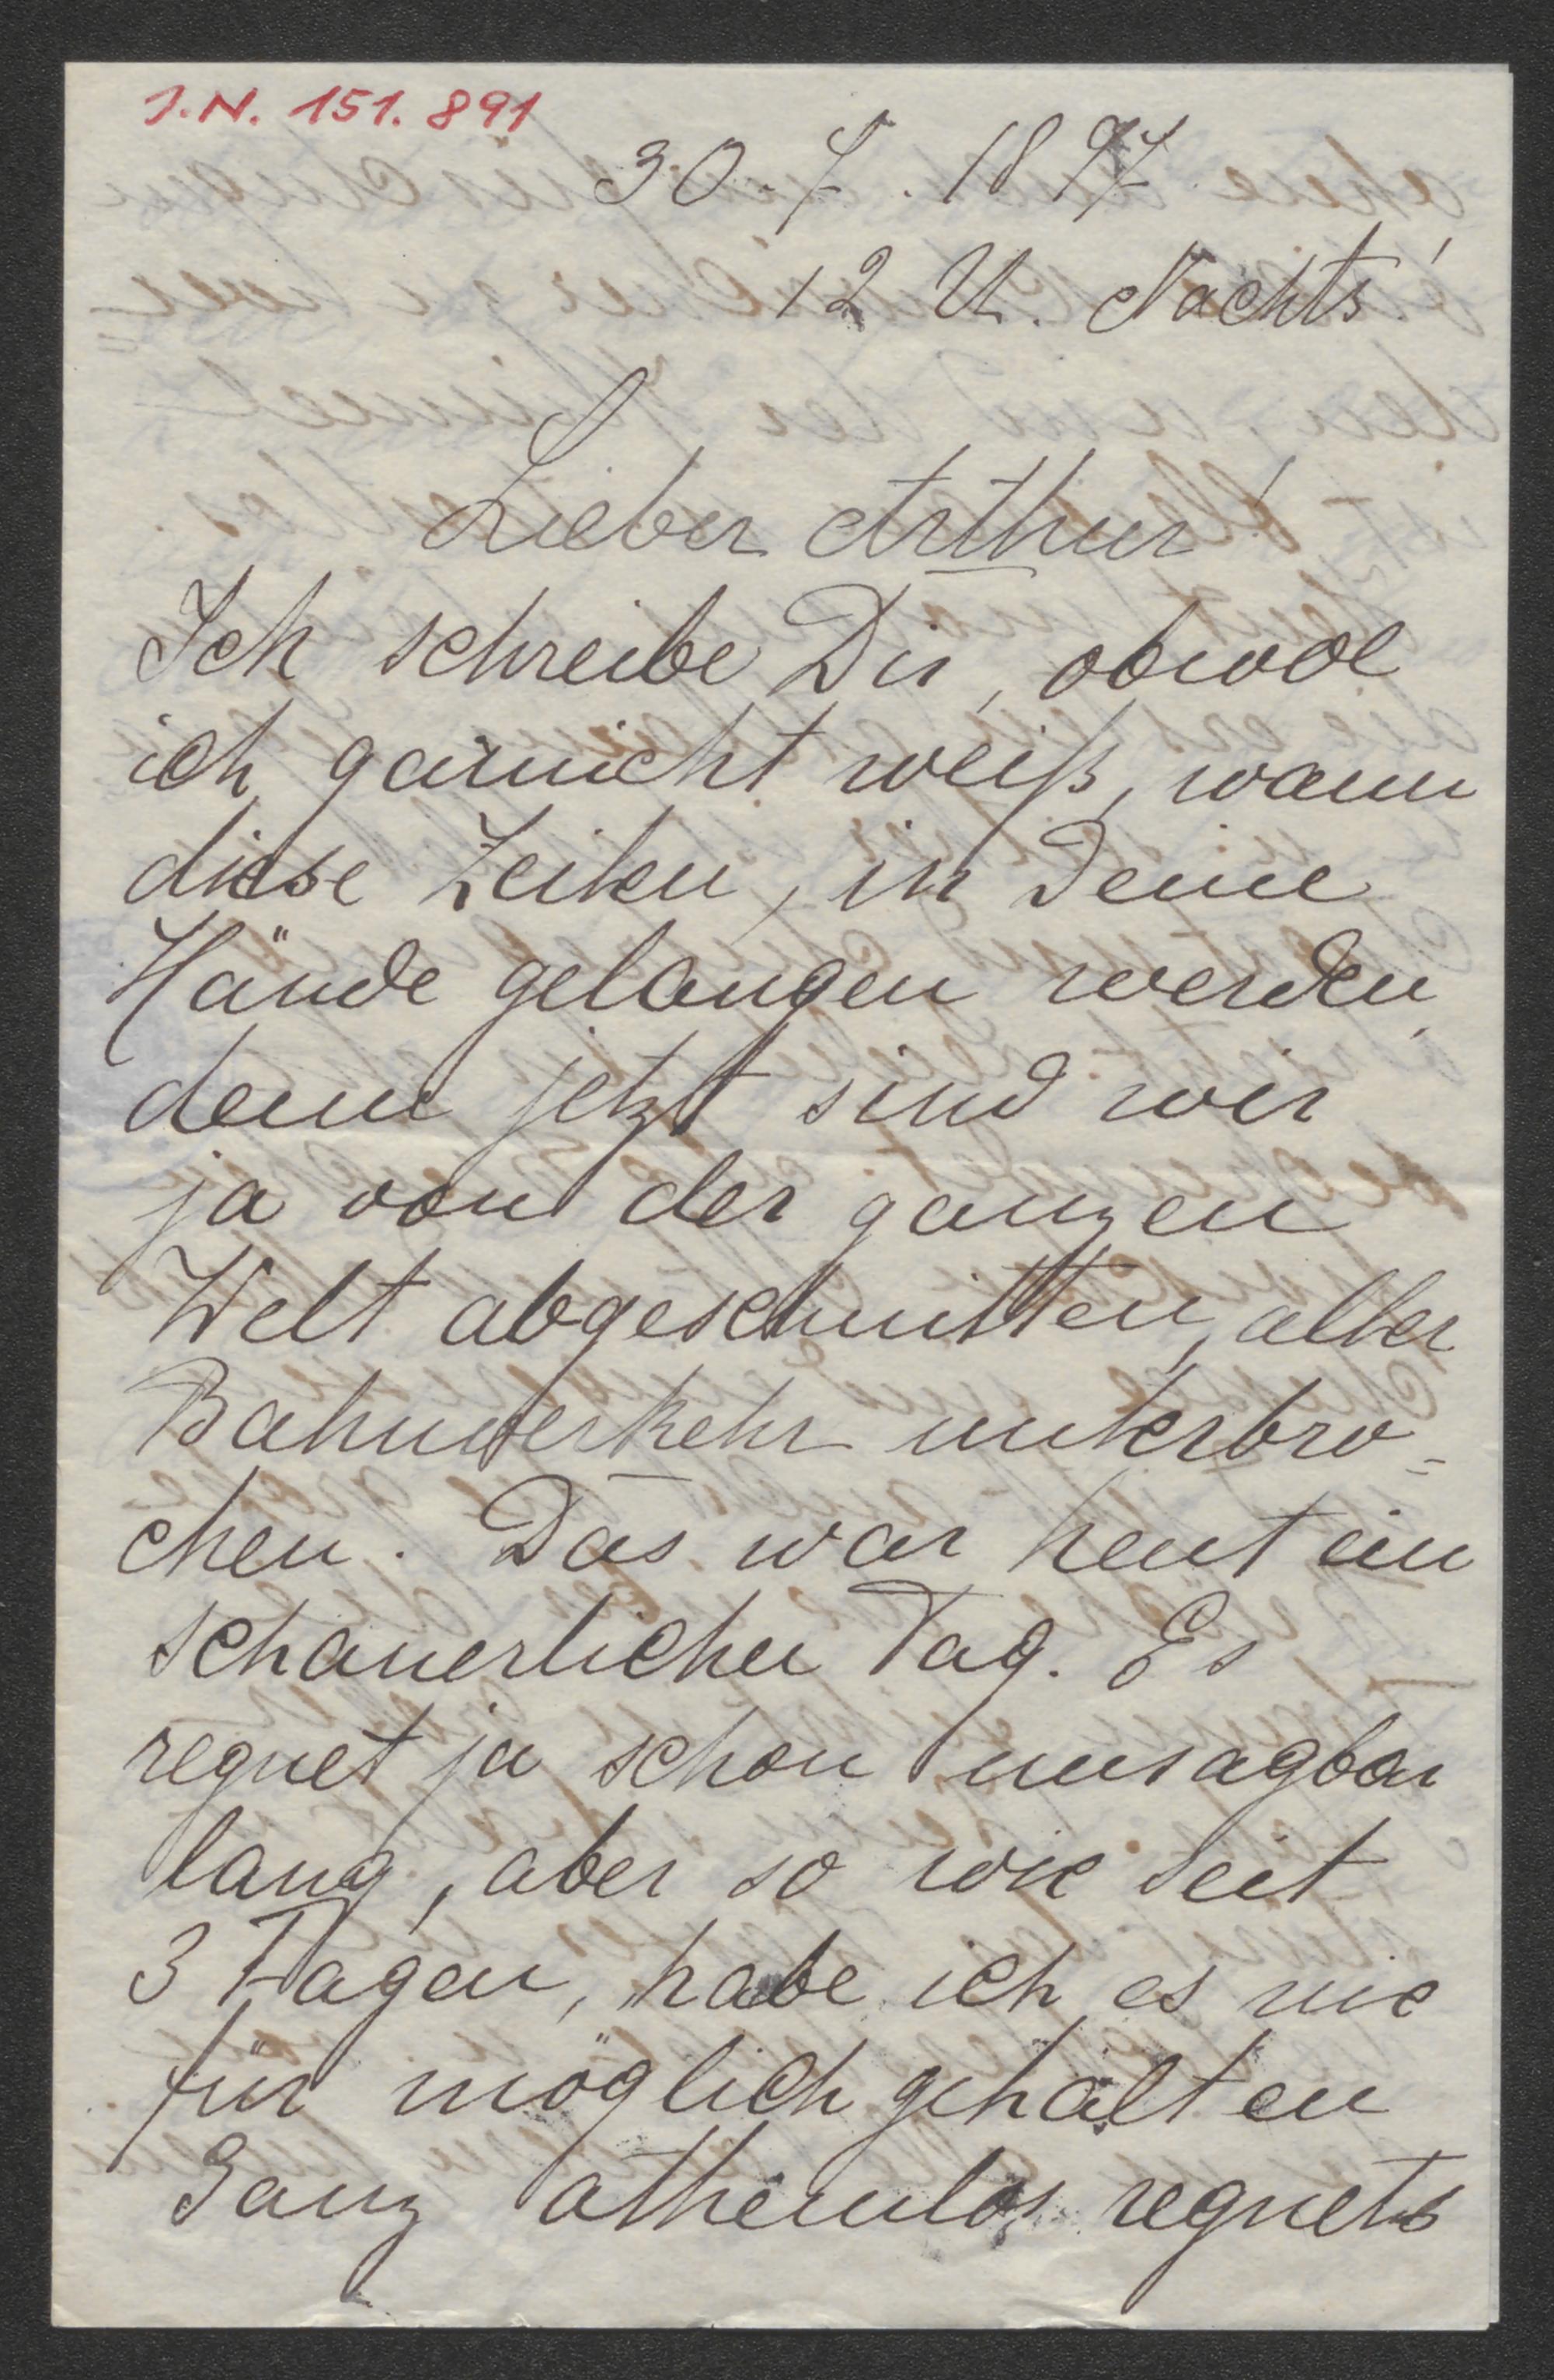 J.N. 151.891
30.7.1897
12 U. Nachts!
Lieber Arthur!
Ich schreibe Dir, obwol
ich garnicht weiß, wann
diese Zeilen, in Deine
Hände gelangen werden,
denn jetzt sind wir
ja von der ganzen
Welt abgeschnitten, aller
Bahnverkehr unterbro=
chen. Das war heut ein
schauerlicher Tag. Es
regnet ja schon unsagbar
lang, aber so wie seit
3 Tagen, habe ich es nie
für möglich gehalten
Ganz athemlos regnets